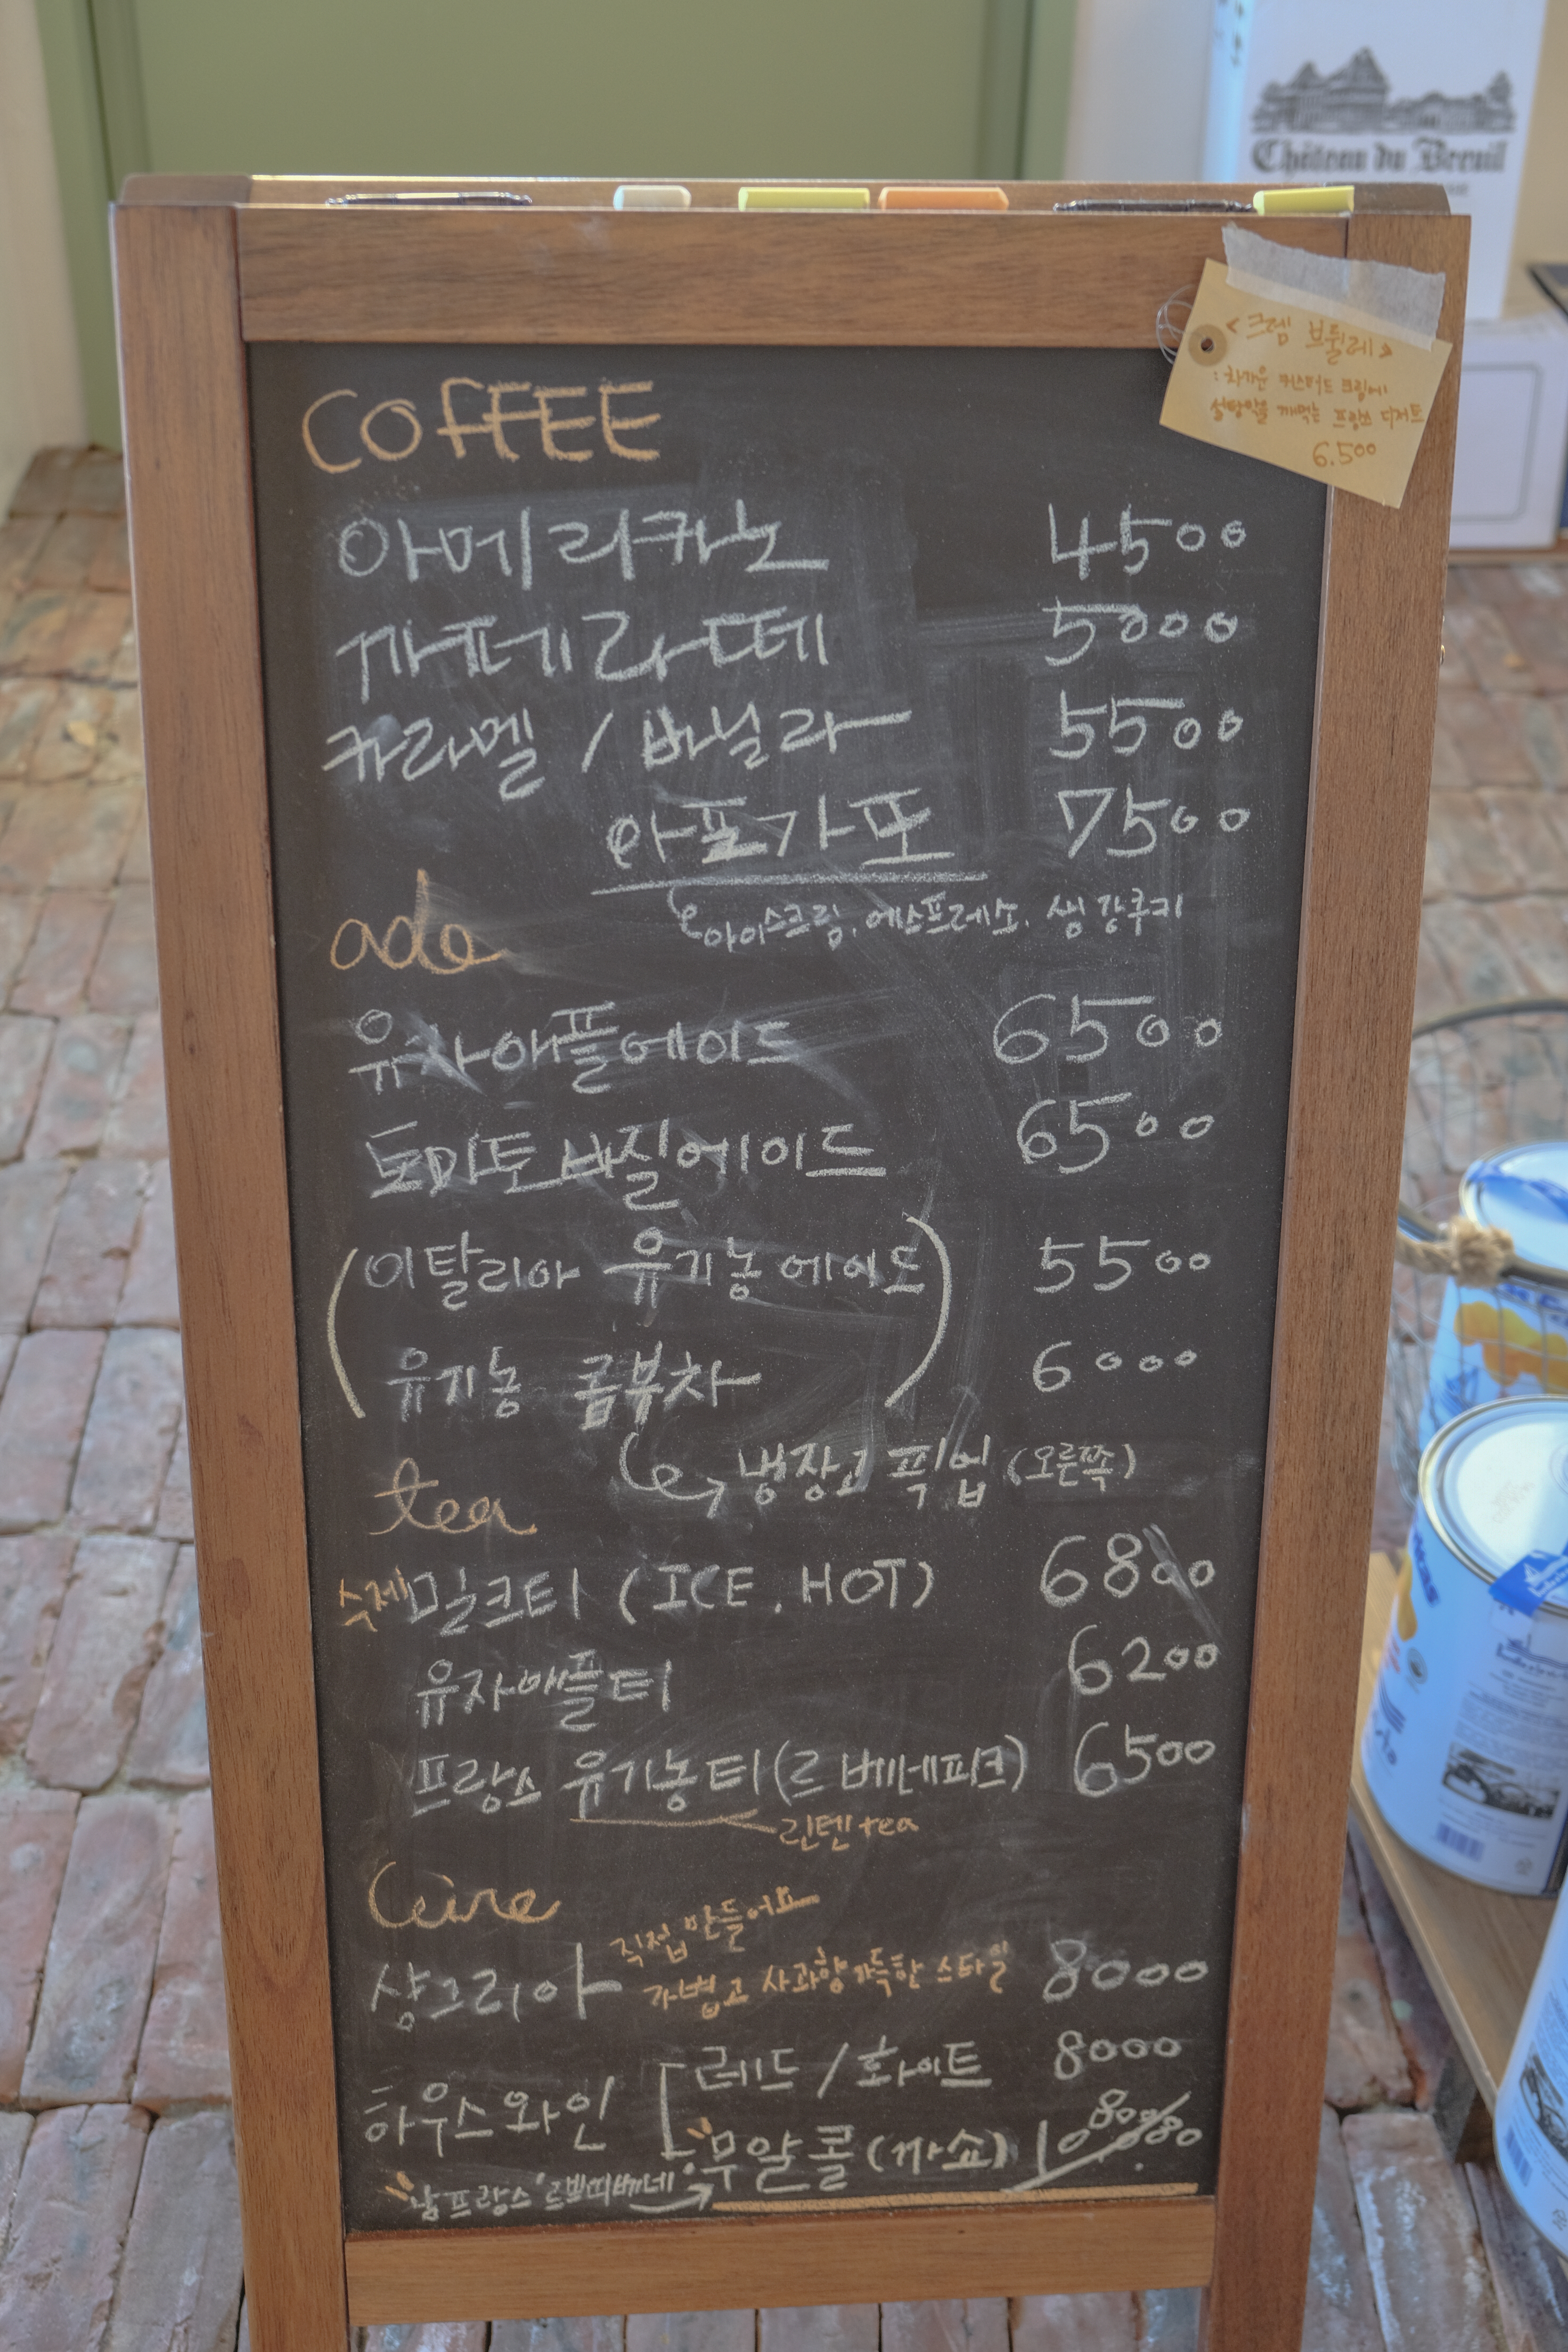 Château du Breuil
<크렘 브륄레>
: 차가운 커스터드 크림에
설탕막을 깨먹는 프랑스 디저트
6.500
COFFEE
아메리카노 4500
까페라떼 5000
카라멜 / 바닐라 5500
아포가또 7500
아이스크림, 에스프레소, 생강쿠키
ade
유자애플에이드 6500
토마토바질에이드 6500
(이탈리아 유기농에이드) 5500
유기농 콤부차 6000
냉장고 픽업 (오른쪽)
tea
수제밀크티 (ICE, HOT) 6800
유자애플티 6200
프랑스 유기농티(르 베네피크) 6500
린텐tea
직접만들어요
샹그리아 가볍고 사과향가득한 스타일 8000
하우스와인 레드 / 화이트 8000
무알콜 (까쇼) 10000 8000
남프랑스